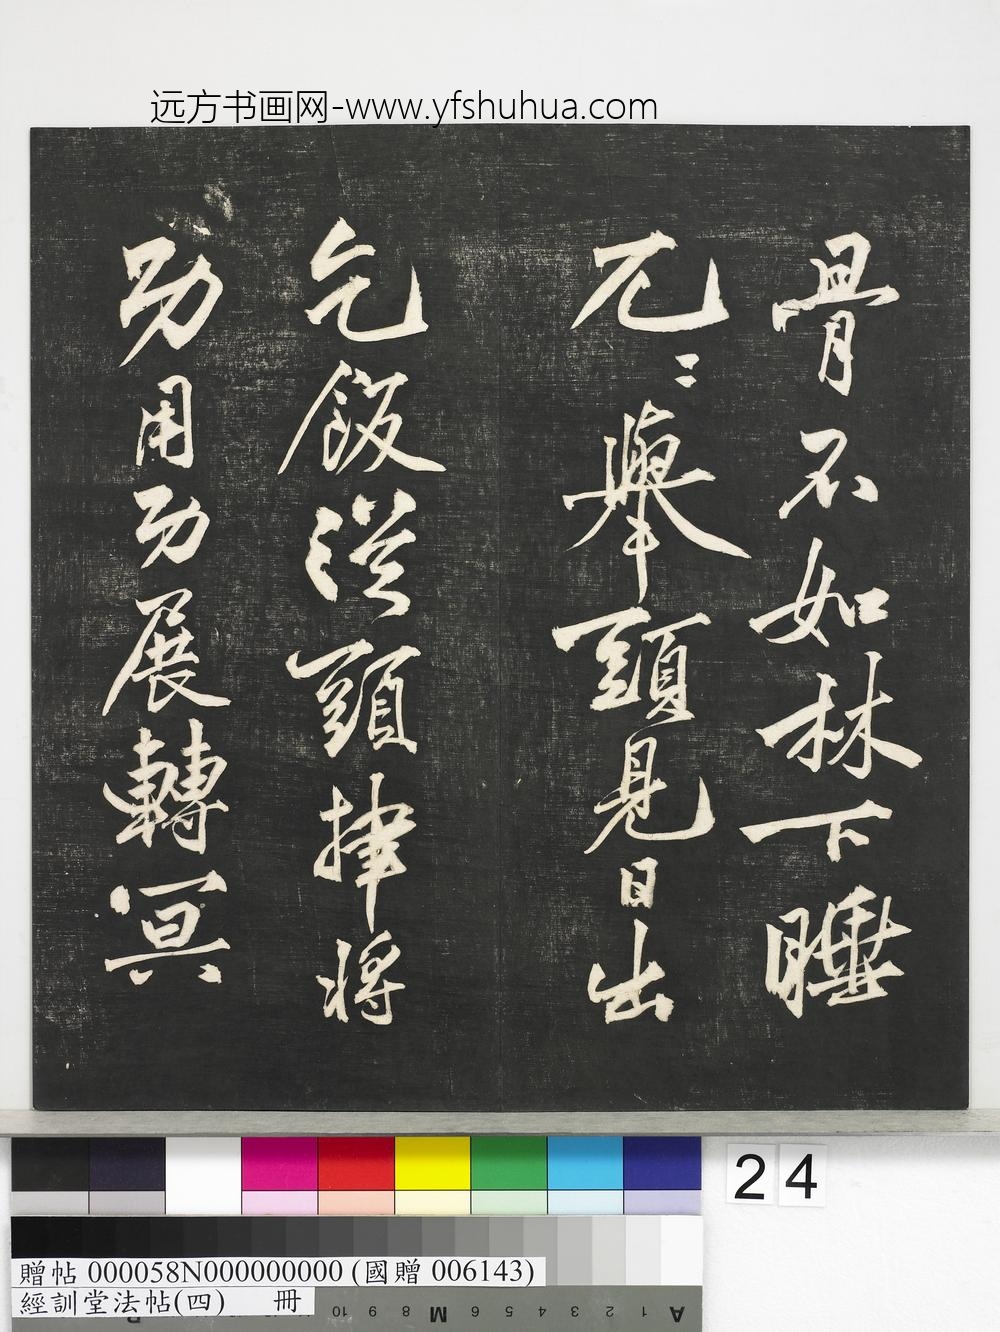 远方书画网-www.yfshuhua.com
骨不如林下睡
兀〻舉頭見日出
乞飯從頭律將
功用功展轉冥
24
贈帖 000058N000000000 (國贈 006143)
經訓堂法帖(四) 冊
10 9 8 M 7 6 5 4 3 2 1 A